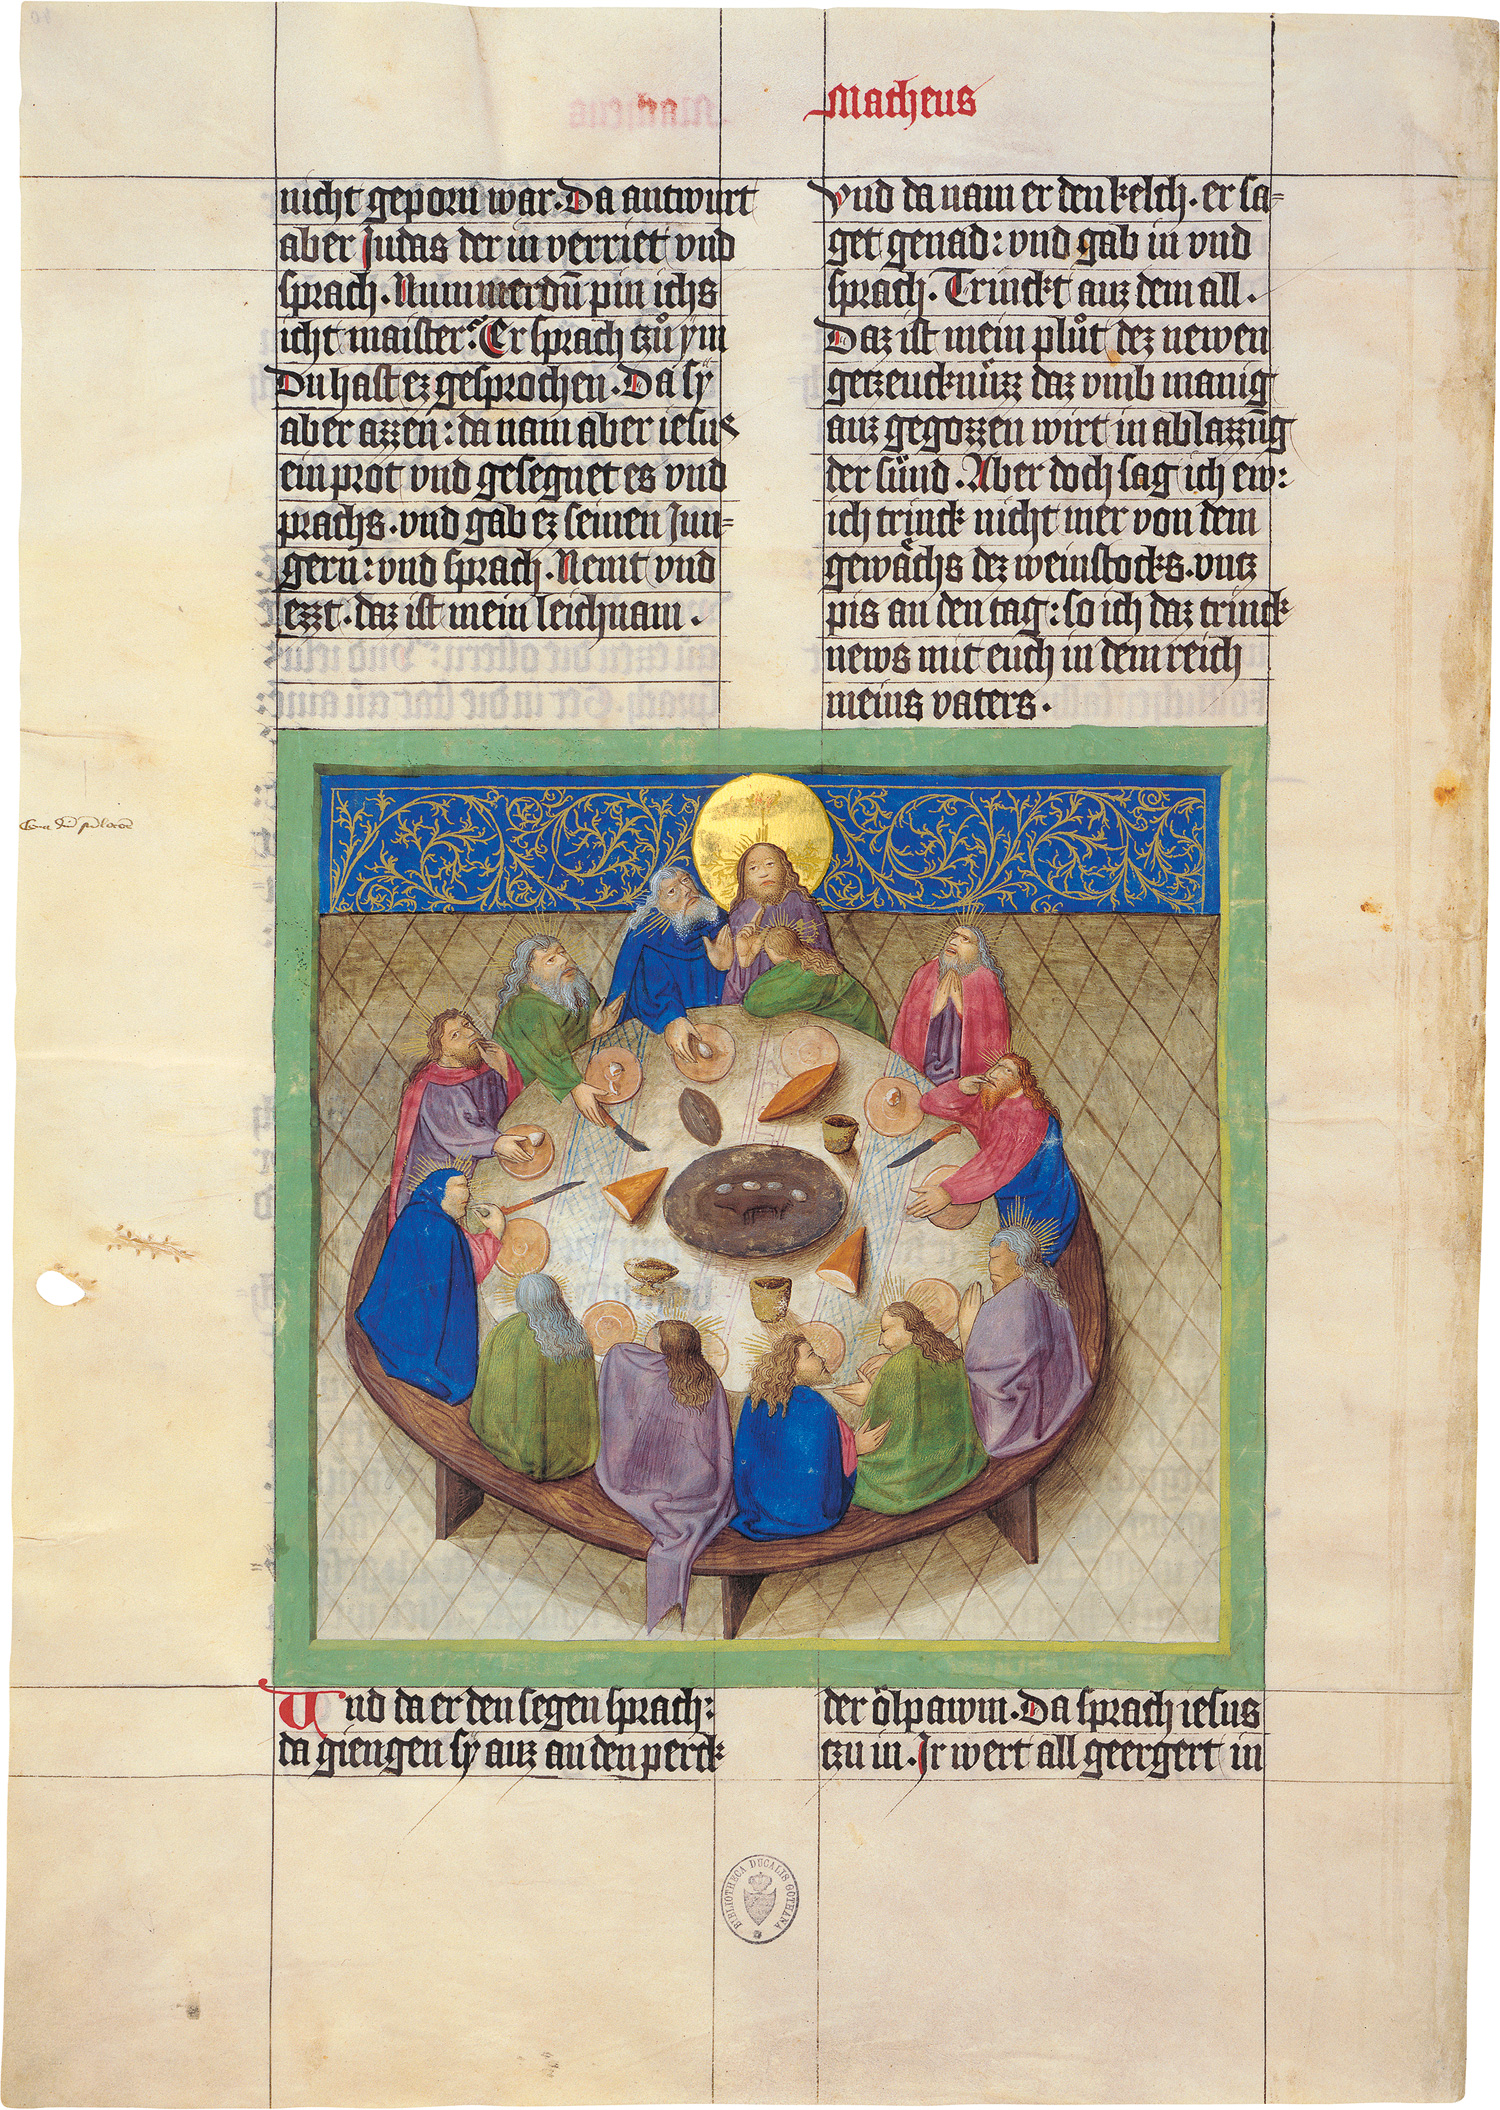 Matheus
nicht geporn war. Da antwurt
aber Judas der in verriet vnd
sprach. Nummerdū pin ichs
icht maister? Er sprach tzů ym
Du hast ez gesprochen. Da sÿ
aber azzen: da nam aber iesus
ein prot vnd gesegnet es vnd
prachs. vnd gab ez seinen Jun=
gern: vnd sprach. Nemt vnd
ezzt. daz ist mein leichnam.
Vnd da nam er den kelch. er sa=
get genad: vnd gab in vnd
sprach. Trinckt auz dem all.
Daz ist mein plůt dez newen
getzeucknüzz daz vmb manig
auz gegozzen wirt in ablazzūg
der sünd. Aber doch sag ich ew:
ich trinck nicht mer von dem
gewächs dez weinstocks. vntz
pis an den tag: so ich daz trinck
news mit euch in dem reich
meins vaters.
Und da er den segen sprach:
da giengen sy auz an den perck
der ölpawm. Da sprach iesus
tzu in. Ir wert all geergert in
BIBLIOTHECA DUCALIS GOTHANA